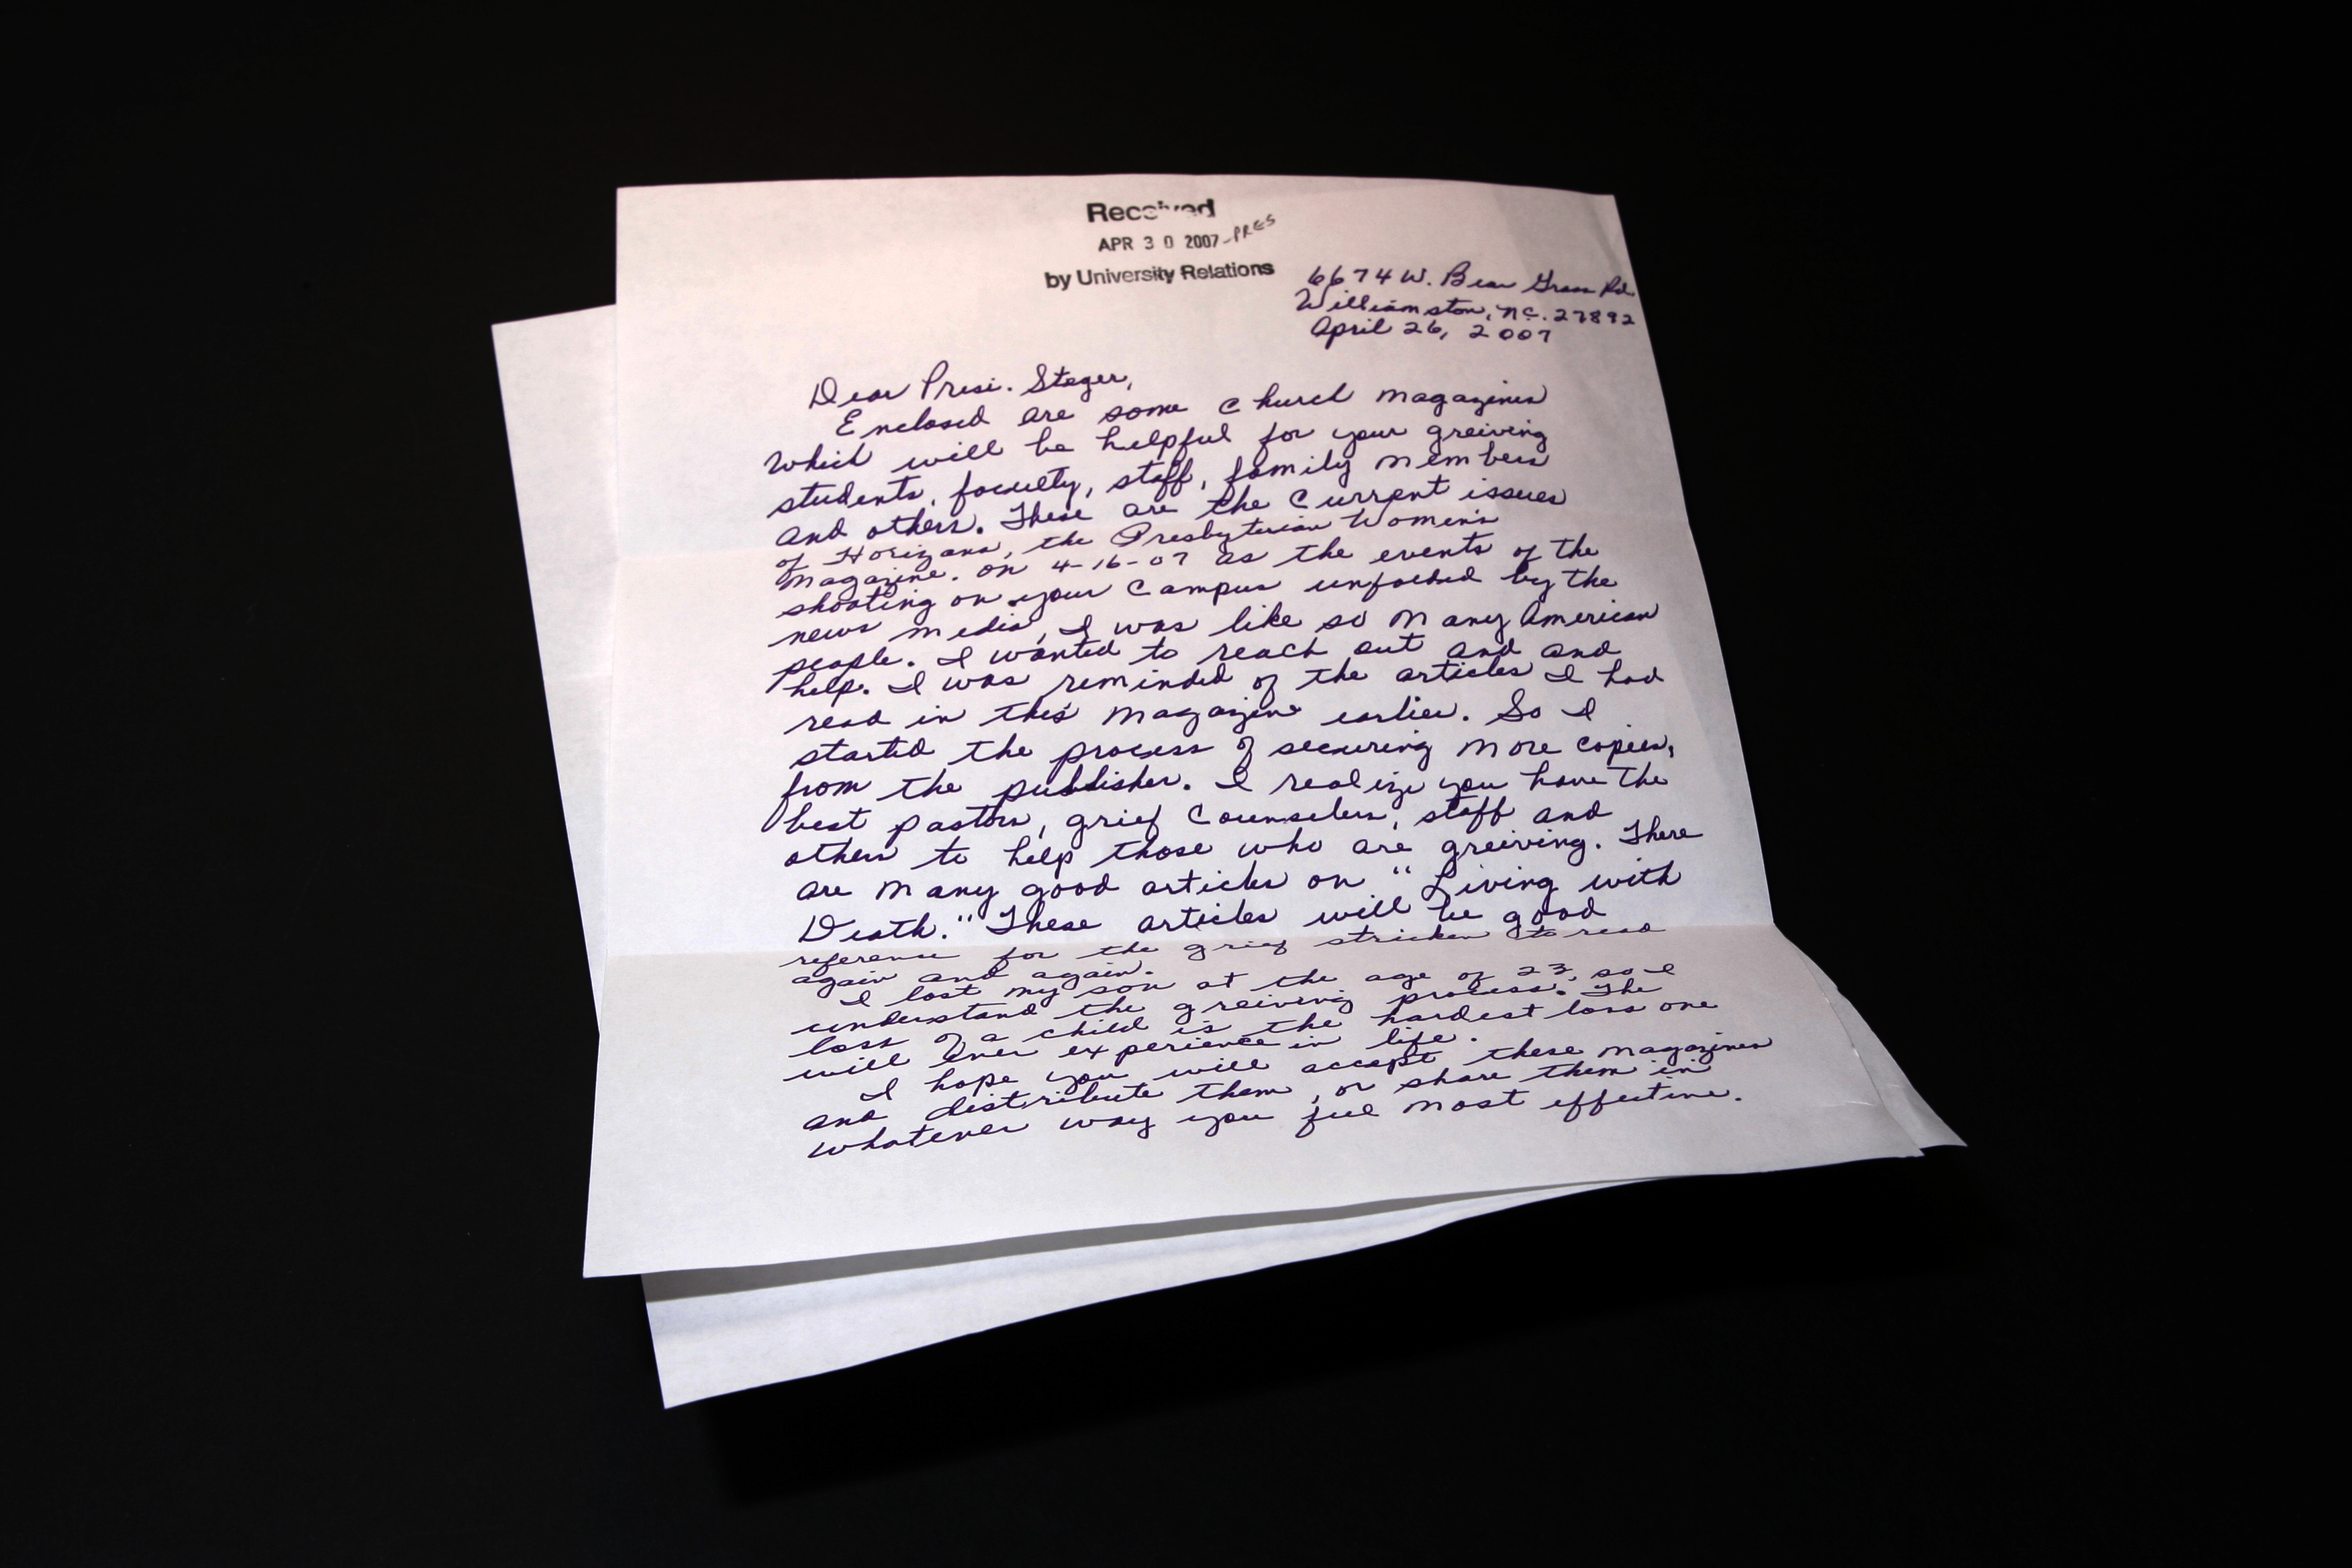 Received
APR 30 2007 -PRES
by University Relations
6674 W. Bear Grass Rd.
Williamston, NC. 27892
April 26, 2007
Dear Presi. Steger,
Enclosed are some church magazines
which will be helpful for your greiving
students, faculty, staff, family members
and others. These are the current issues
of Horizons, the Presbyterian Women's
magazine. On 4-16-07 as the events of the
shooting on your campus unfolded by the
news media, I was like so many American
people. I wanted to reach out and and
help. I was reminded of the articles I had
read in this magazine earlier. So I
started the process of securing more copies,
from the publisher. I realize you have the
best pastors, grief counselers, staff and
others to help those who are greiving. There
are many good articles on "Living with
Death." These articles will be good
reference for the grief stricken to read
again and again.
I lost my son at the age of 23, so I
understand the greiving process. The
loss of a child is the hardest loss one
will ever experience in life.
I hope you will accept these magazines
and distribute them, or share them in
whatever way you feel most effective.